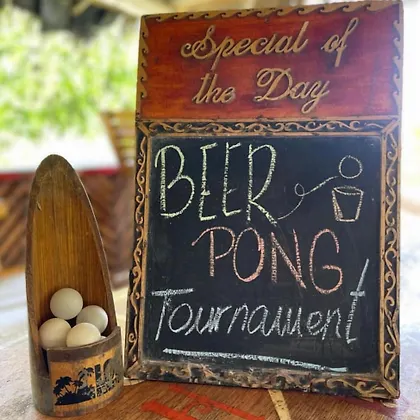 Special of
the Day
BEER
PONG
Tournament